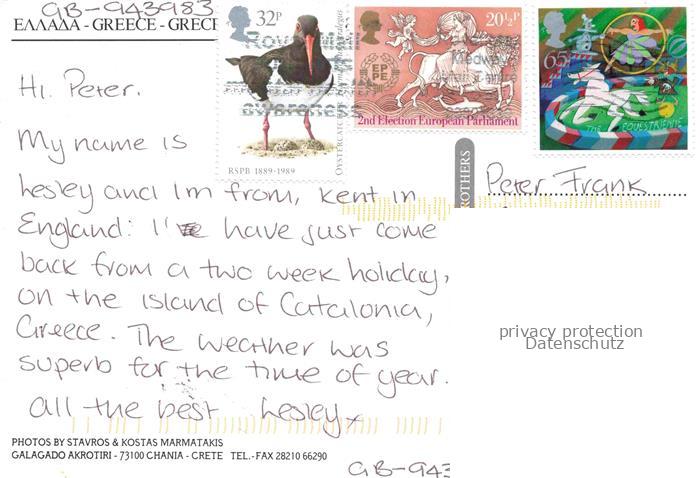 GB-943983
ΕΛΛΑΔΑ - GREECE - GRECE
32P
20½P
65
Medway
EP
PE
2nd Election European Parliament
THE EQUESTRIENNE
RSPB 1889-1989
OYSTERCATCHER
Hi Peter.
My name is
Lesley and I'm from, Kent in
England: I've have just come
back from a two week holiday,
on the island of Catalonia,
Greece. The weather was
superb for the time of year.
All the best Lesley x
ROTHERS
Peter Frank
privacy protection
Datenschutz
PHOTOS BY STAVROS & KOSTAS MARMATAKIS
GALAGADO AKROTIRI - 73100 CHANIA - CRETE TEL.-FAX 28210 66290
GB-943